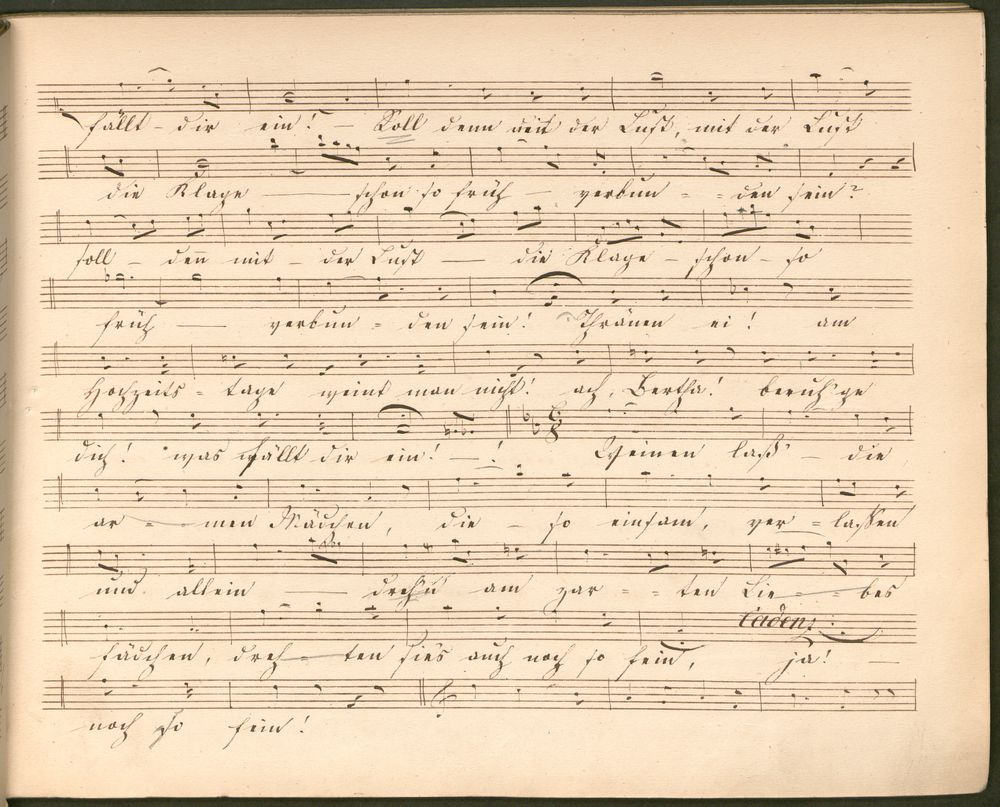 fällt - dir ein! - Soll denn mit der Lust, mit der Lust
die Klage — schon so früh — verbun - - den sein?
soll - den mit - der Lust — die Klage - schon - so
früh — verbun - den sein! Thränen ei! am
Hochzeits - tage weint man nicht! ach, Bertha! beruh'ge
dich! was fällt dir ein! - ! Weinen laß - die
ar - men Mädchen, die - so einsam, ver - lassen
und allein — dreh'n am zar - - ten Lie - - bes
fädchen, dreh - ten sie's auch noch so fein, ja! —
Cadenz
noch so fein!